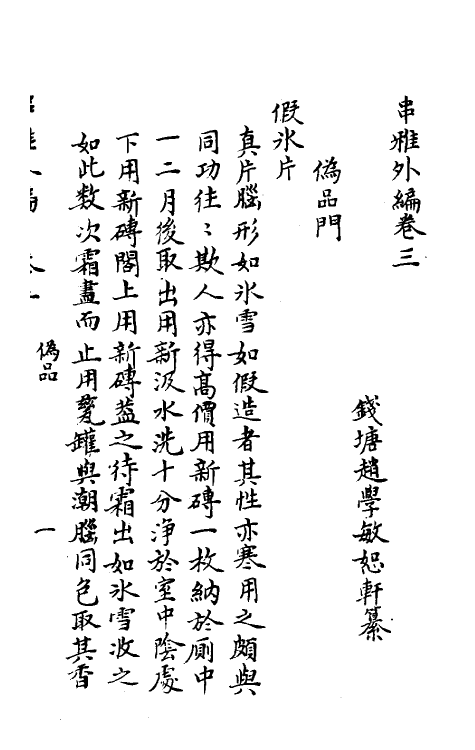 串雅外編卷三
錢塘趙學敏恕軒纂
偽品門
假氷片
真片腦形如氷雪如假造者其性亦寒用之頗與
同功往〻欺人亦得高價用新磚一枚納於厠中
一二月後取出用新汲水洗十分淨於室中陰處
下用新磚閣上用新磚葢之待霜出如氷雪收之
如此数次霜盡而止用甕罐與潮腦同色取其香
偽品
一